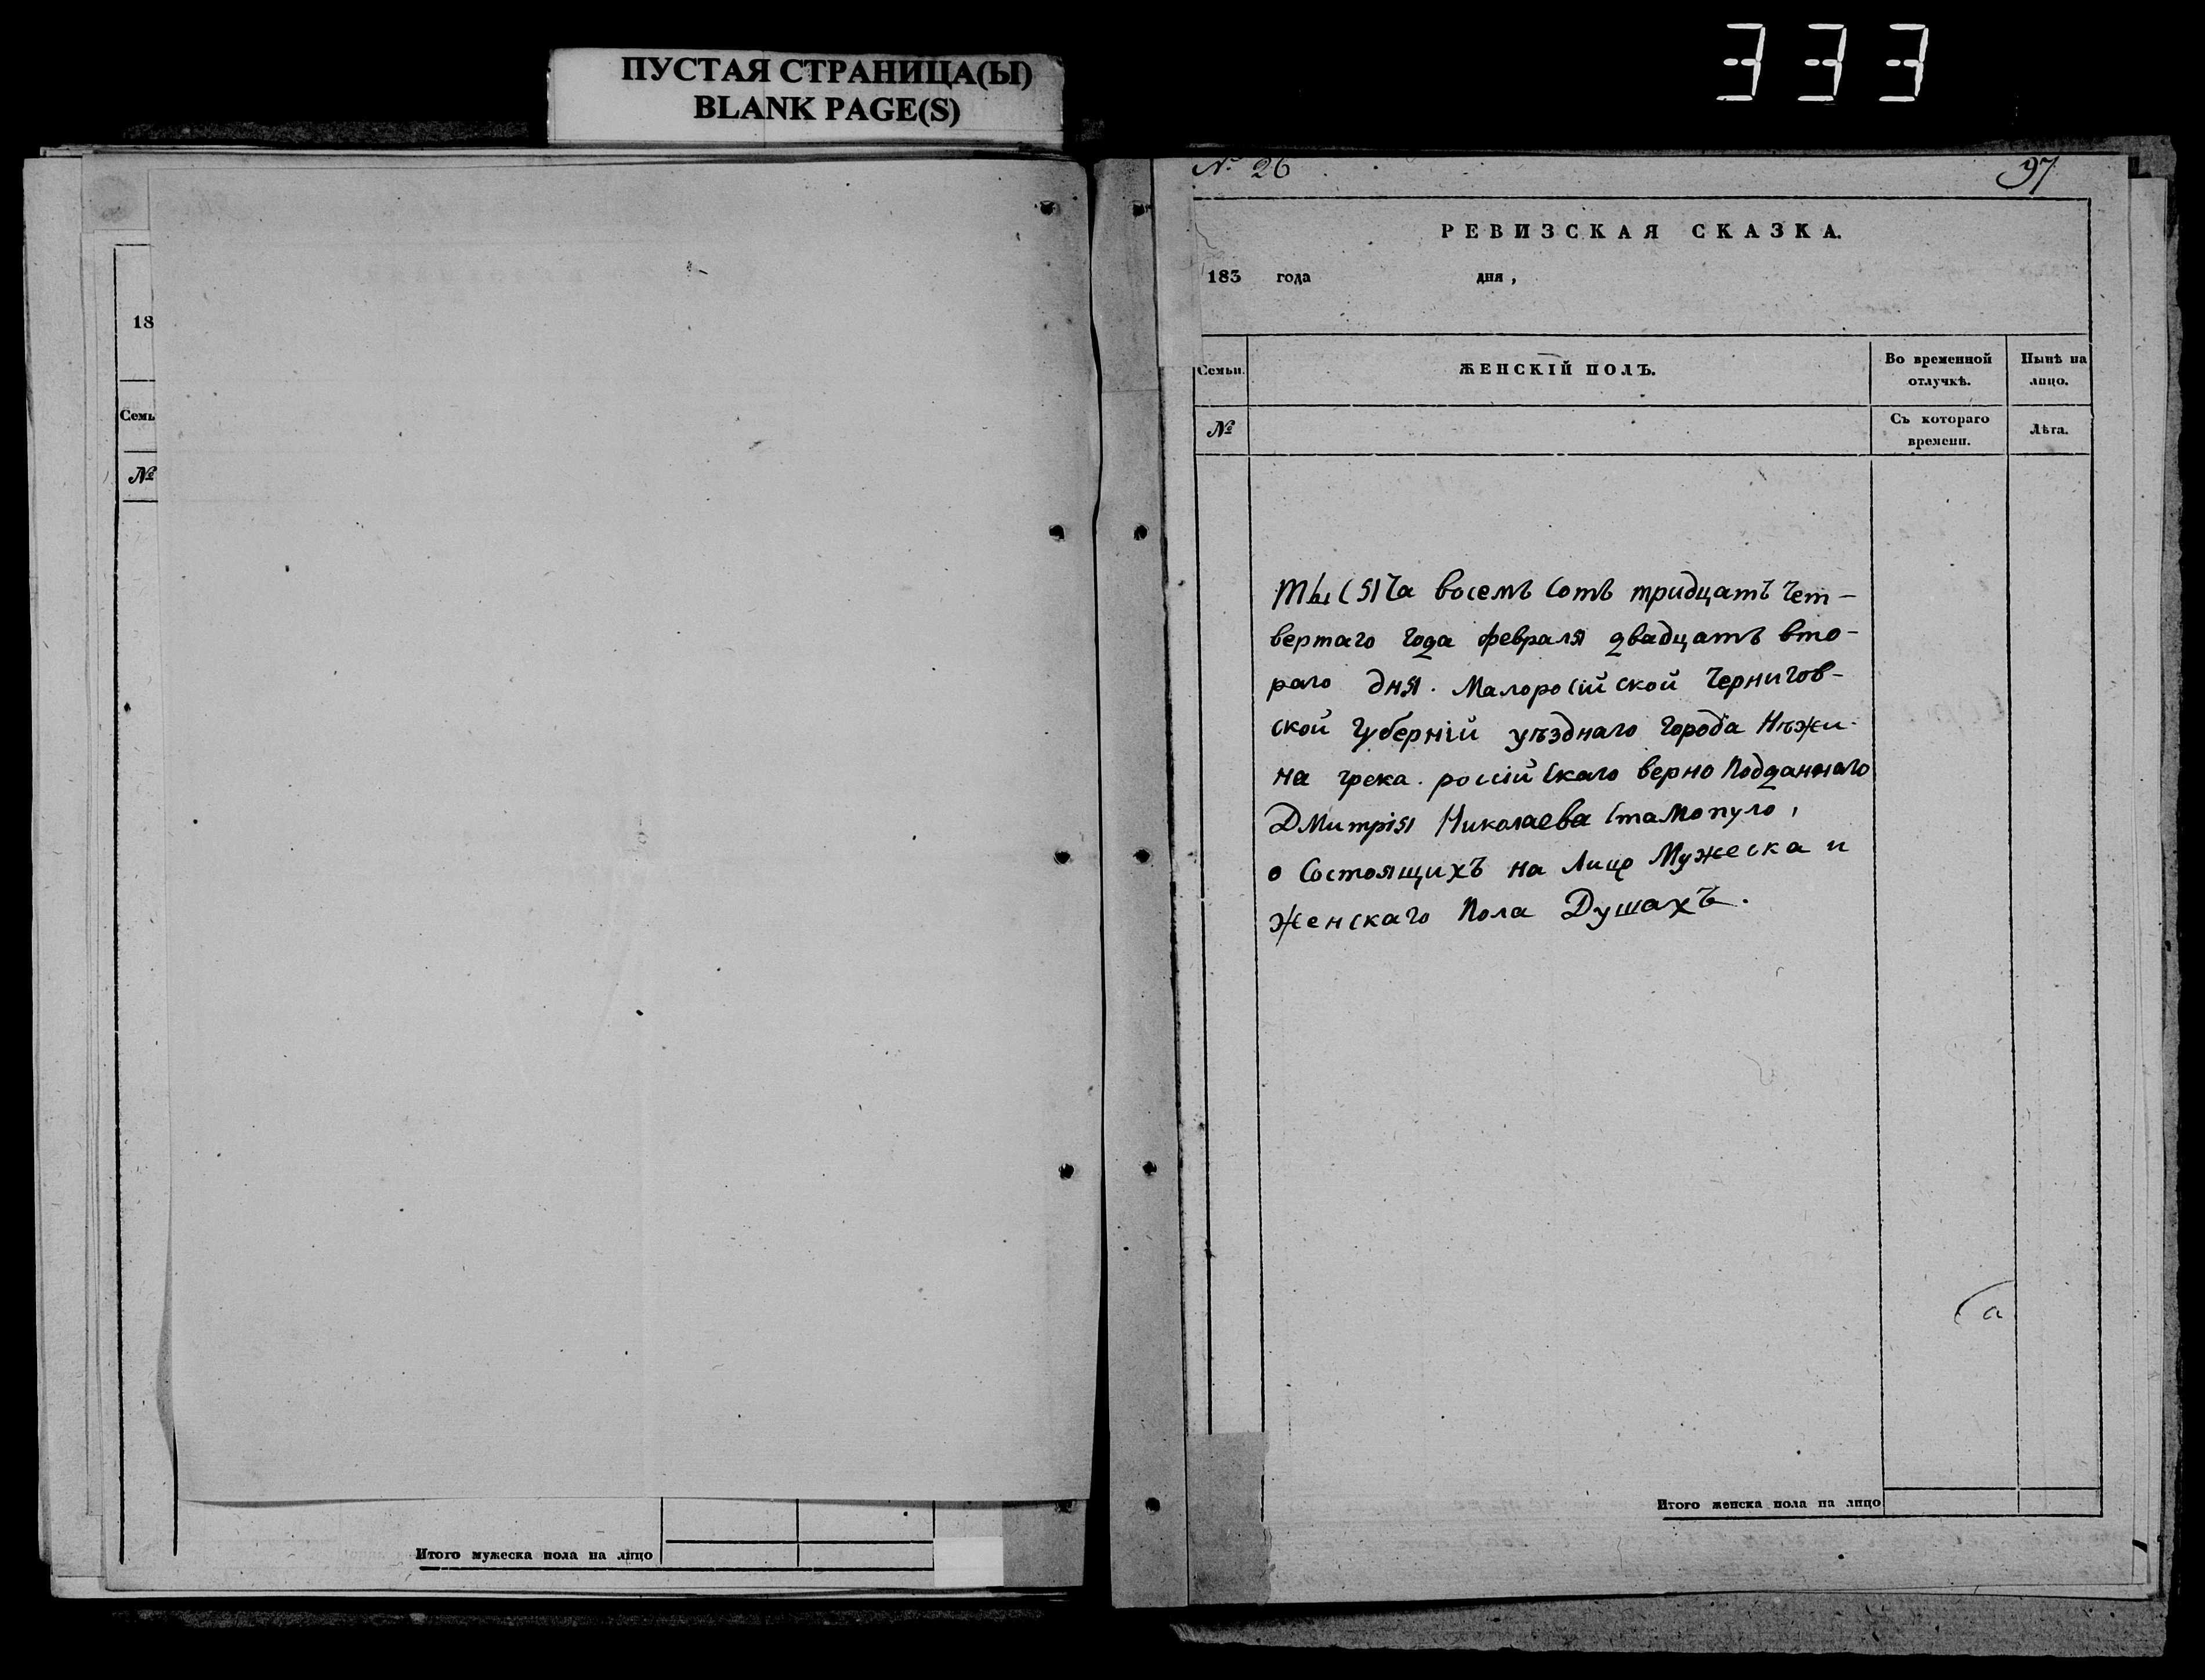 ПУСТАЯ СТРАНИЦА(Ы)
BLANK PAGE(S)
333
18
Семь
№
Итого мужеска пола на лицо
№ 26
97
РЕВИЗСКАЯ СКАЗКА.
183 года дня,
Семьи. ЖЕНСКІЙ ПОЛЪ. Во временной отлучкѣ. Нынѣ на лицо.
№ Съ котораго времени. Лѣта.
тысяча восемъ сотъ тридцатъ чет-
вертаго года февраля двадцатъ вто-
раго дня. Малоросійской Чернигов-
ской губерніи уѣзднаго города Нѣжи-
на грека. россійскаго верно подданнаго
Дмитрія Николаева Стамопуло,
о состоящихъ на лице мужеска и
женскаго пола душахъ.
а
Итого женска пола на лицо